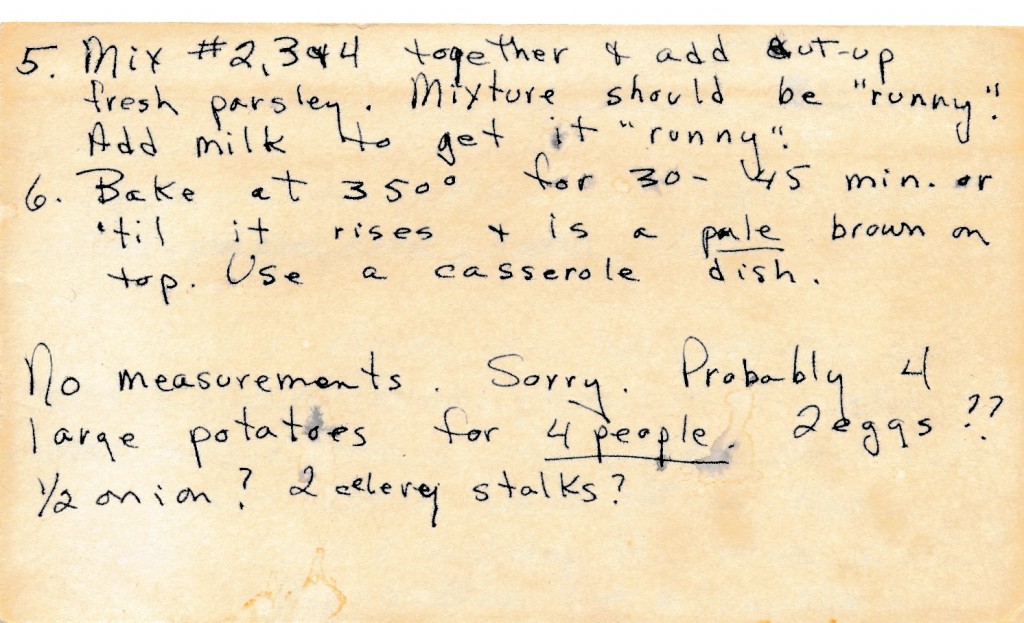 5. Mix #2,3&4 together & add cut-up
fresh parsley. Mixture should be "runny".
Add milk to get it "runny".
6. Bake at 350° for 30-45 min. or
'til it rises + is a pale brown on
top. Use a casserole dish.
No measurements. Sorry. Probably 4
large potatoes for 4 people. 2 eggs??
1/2 onion? 2 celery stalks?